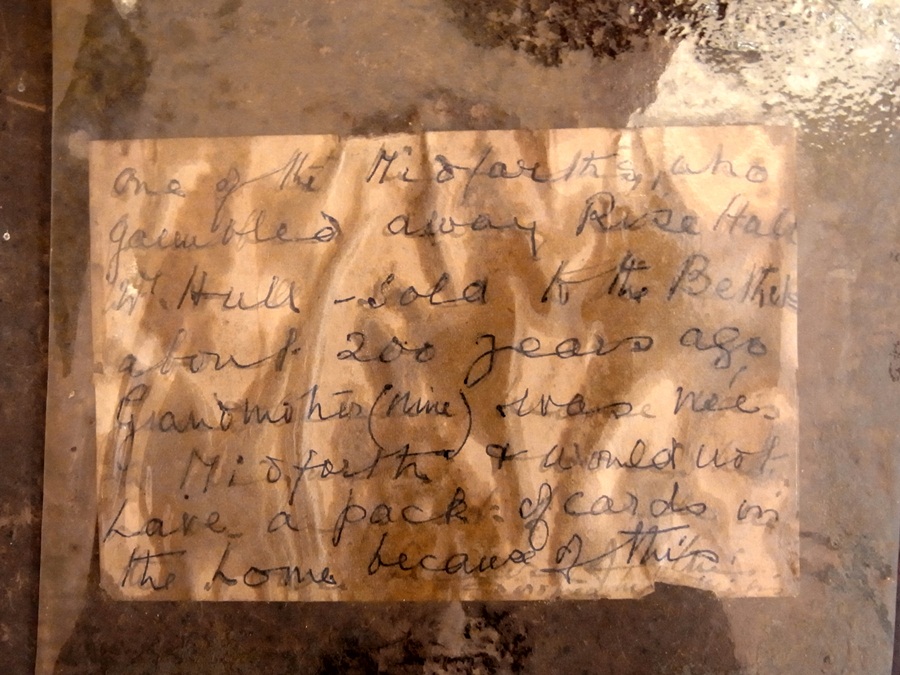 One of the Midforths, who
gambled away Rise Hall
Nr. Hull - Sold to the Bethels
about 200 years ago
Grandmother (Mine) was née
Midforth & would not
have a pack of cards in
the home because of this.